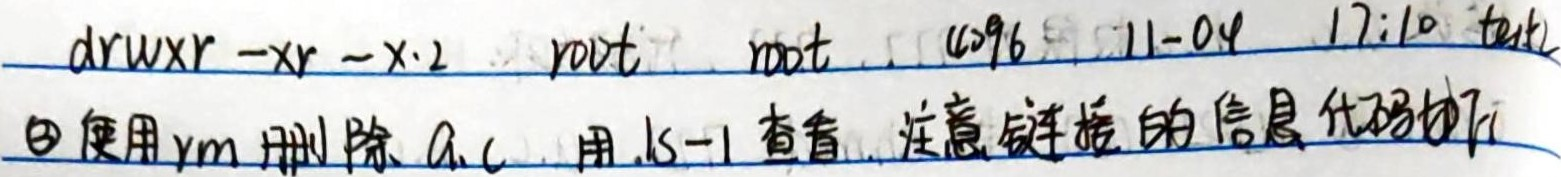 drwxr-xr-x.2 root root 4096 11-04 17:10 test2
④使用rm删除a.c 用ls-l查看.注意链接的信息代码如下: